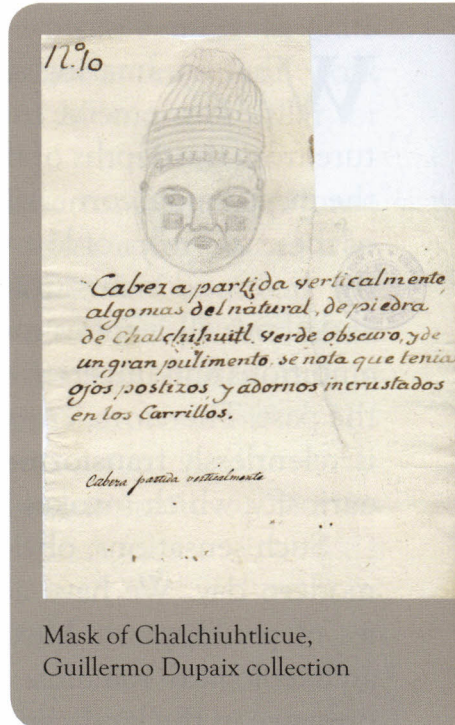 Nº.10
Cabeza partida verticalmente,
algo mas del natural, de piedra
de Chalchihuitl verde obscuro, y de
un gran pulimento. se nota que tenia
ojos postizos, y adornos incrustados
en los Carrillos.
Cabeza partida verticalmente
Mask of Chalchiuhtlicue,
Guillermo Dupaix collection